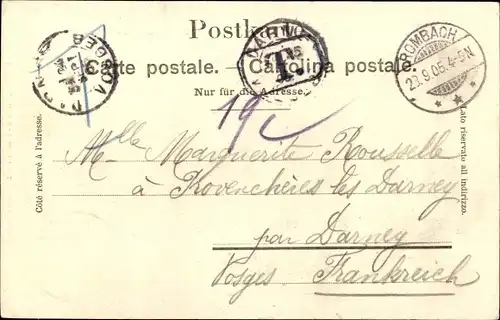 Postkarte
Carte postale. — Cartolina postale.
Nur für die Adresse.
T.
BROMBACH
23.9.05.4-5N
19c
Côté réservé à l'adresse.
Lato riservato all indirizzo.
Mlle Marguerite Rousselle
à Provenchères les Darney
par Darney
Vosges Frankreich